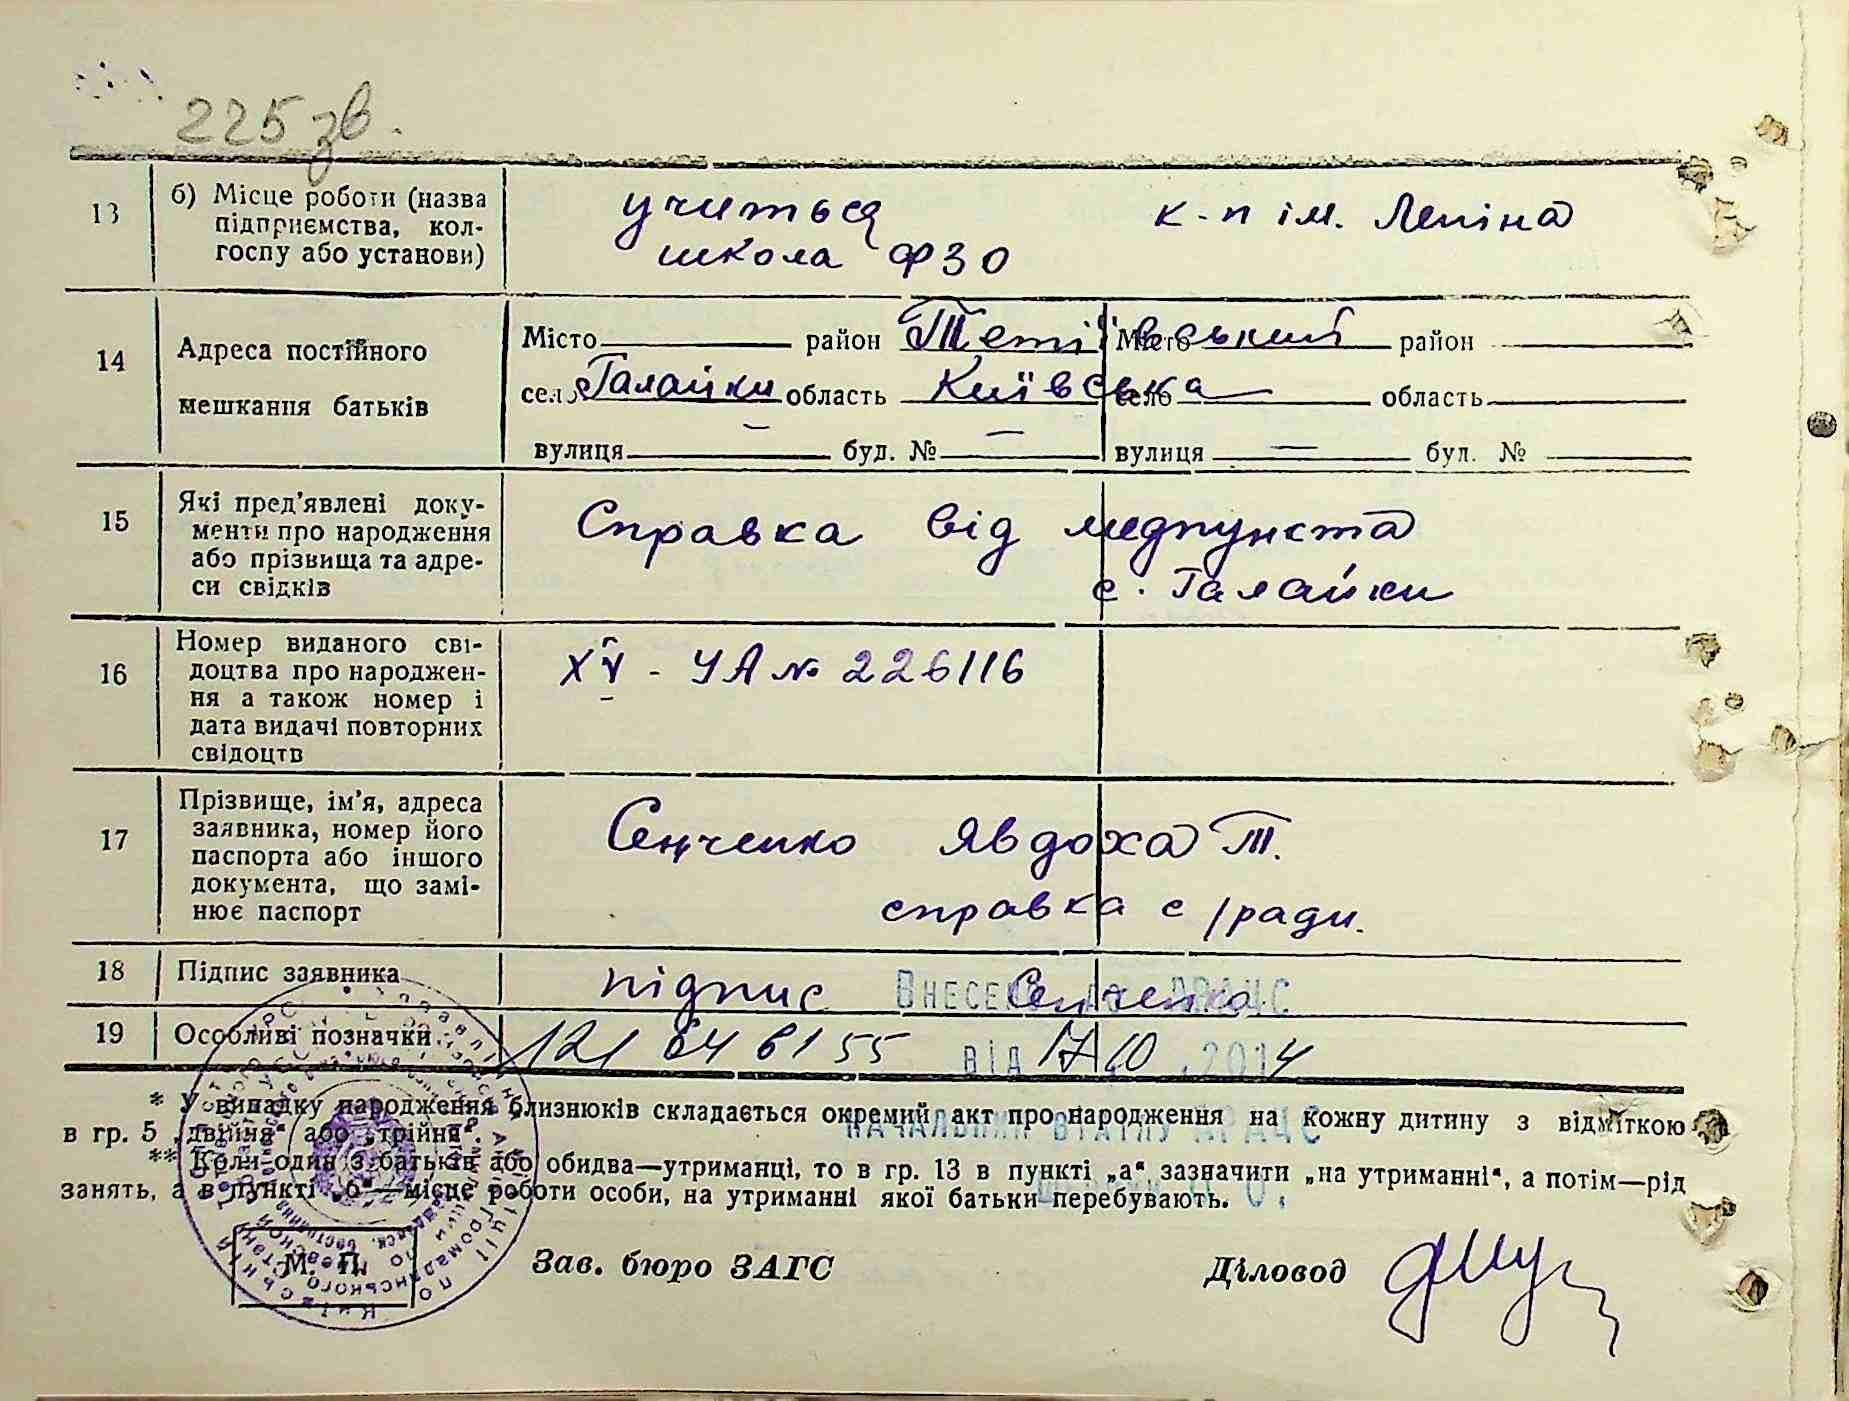 225 зв.
13
б) Місце роботи (назва
підприємства, кол-
госпу або установи)
учиться
школа ФЗО
к-п ім. Леніна
14
Адреса постійного
мешкання батьків
Місто район Тетіївський
село Галайки область Київська
вулиця — буд. № —
Місто район
село область
вулиця — буд. №
15
Які пред'явлені доку-
менти про народження
або прізвища та адре-
си свідків
Справка від медпункта
с. Галайки
16
Номер виданого сві-
доцтва про народжен-
ня а також номер і
дата видачі повторних
свідоцтв
XV - УА № 226116
17
Прізвище, ім'я, адреса
заявника, номер його
паспорта або іншого
документа, що замі-
нює паспорт
Сенченко Явдоха Т.
справка с/ради.
18
Підпис заявника
підпис Сенченко
Внесено до ДРАЦС
19
Особливі позначки
121 64 61 55
від 17 10 .2014
* У випадку народження близнюків складається окремий акт про народження на кожну дитину з відміткою
в гр. 5 „двійня“ або „трійня“.
начальник відділу ДРАЦС
** Коли один з батьків або обидва—утриманці, то в гр. 13 в пункті „а“ зазначити „на утриманні“, а потім—рід
занять, а в пункті „б“—місце роботи особи, на утриманні якої батьки перебувають.
М. П.
Зав. бюро ЗАГС
Діловод